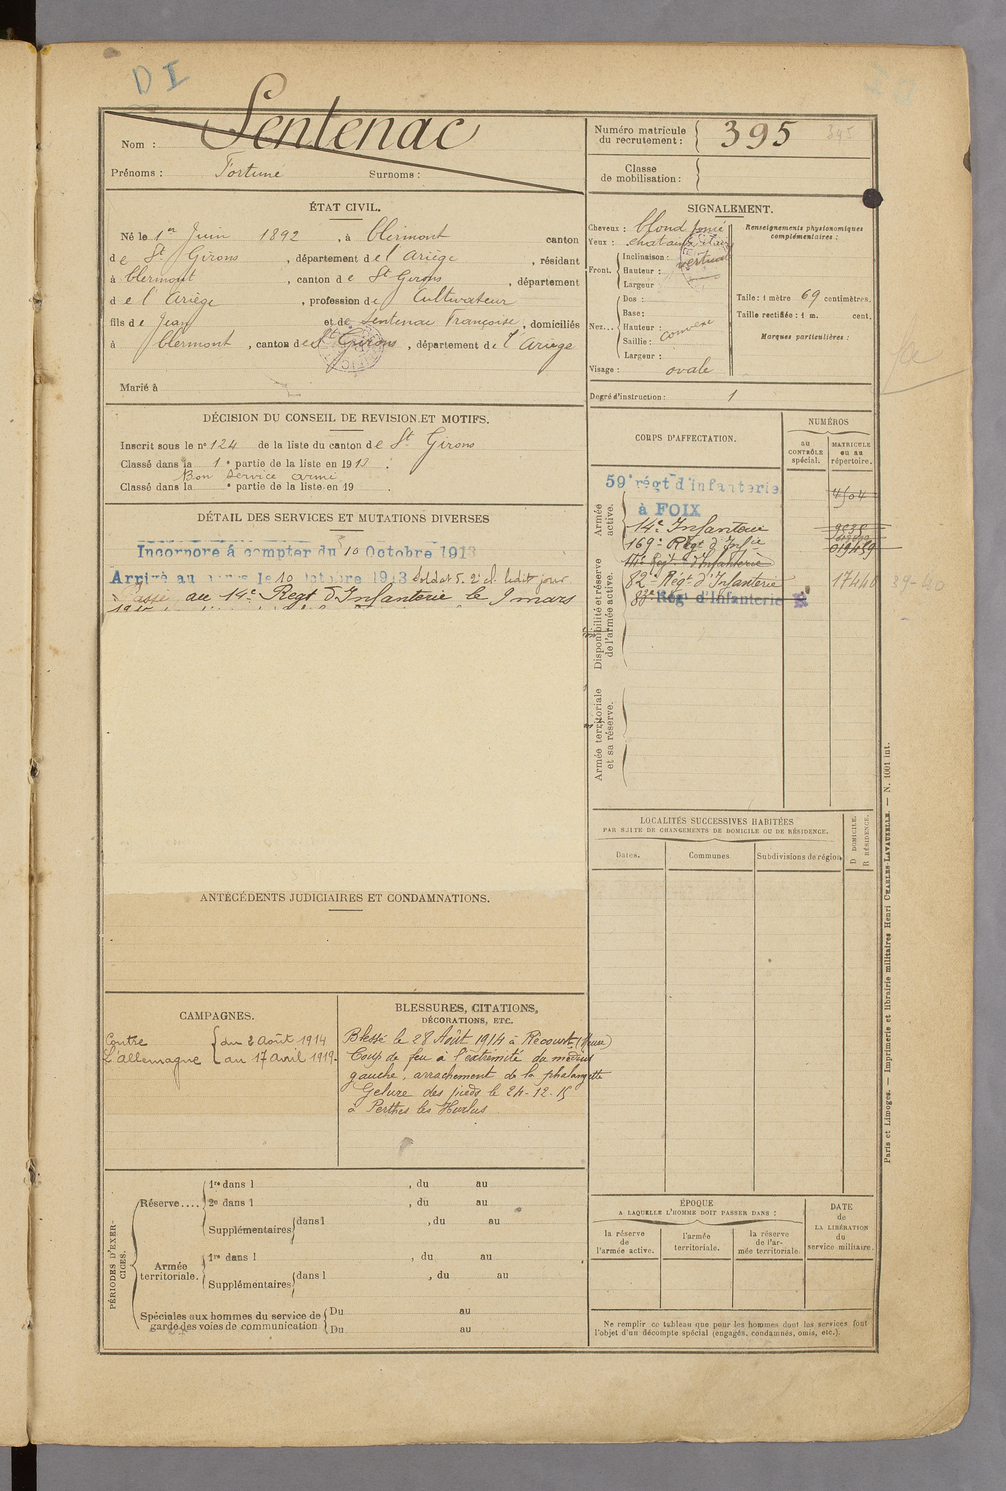 DI
Nom : Sentenac
Prénoms : Fortuné Surnoms :
Numéro matricule du recrutement : 395 395
Classe de mobilisation :
ÉTAT CIVIL.
Né le 1er Juin 1892, à Clermont canton
de St Girons, département de l'Ariège, résidant
à Clermont, canton de St Girons, département
de l'Ariège, profession de Cultivateur
fils de Jean et de Sentenac Françoise, domiciliés
à Clermont, canton de St Girons, département de l'Ariège
Marié à
SIGNALEMENT.
Cheveux : blond foncé
Yeux : chatain clair
Front. Inclinaison : vertical
Hauteur :
Largeur
Nez... Dos :
Base :
Hauteur :
Saillie : convexe
Largeur :
Visage : ovale
Renseignements physionomiques complémentaires :
Taille : 1 mètre 69 centimètres.
Taille rectifiée : 1 m. cent.
Marques particulières :
Degré d'instruction : 1
DÉCISION DU CONSEIL DE REVISION ET MOTIFS.
Inscrit sous le n° 124 de la liste du canton de St Girons
Classé dans la 1e partie de la liste en 1913.
Bon service armé
Classé dans la e partie de la liste en 19 .
DÉTAIL DES SERVICES ET MUTATIONS DIVERSES
Incorporé à compter du 10 Octobre 1913
Arrivé au corps le 10 Octobre 1913 soldat de 2e cl. ledit jour
Passé au 14e Regt d'Infanterie le 9 mars
CORPS D'AFFECTATION.
NUMÉROS
au CONTRÔLE spécial.
MATRICULE ou au répertoire.
Armée active.
59e régt d'infanterie
à FOIX
4504
14e Infanterie
169e Régt d'Infie
019459
Disponibilité et réserve de l'armée active.
82e Régt d'Infanterie 17440 39-40
83e Régt d'Infanterie
Armée territoriale et sa réserve.
LOCALITÉS SUCCESSIVES HABITÉES
PAR SUITE DE CHANGEMENTS DE DOMICILE OU DE RÉSIDENCE.
Dates. Communes Subdivisions de région D DOMICILE. R RÉSIDENCE.
ANTÉCÉDENTS JUDICIAIRES ET CONDAMNATIONS.
CAMPAGNES.
Contre l'Allemagne { du 2 Août 1914
au 17 Avril 1919.
BLESSURES, CITATIONS,
DÉCORATIONS, ETC.
Blessé le 28 Août 1914 à Récourt (Meuse)
Coup de feu à l'extrémité du médius
gauche, arrachement de la phalangette
Gelure des pieds le 24-12-15
à Perthes les Hurlus
PÉRIODES D'EXERCICES.
Réserve.... 1re dans l , du au
2e dans l , du au
Supplémentaires dans l , du au
Armée territoriale. 1re dans l , du au
Supplémentaires dans l , du au
Spéciales aux hommes du service de garde des voies de communication Du au
Du au
ÉPOQUE
A LAQUELLE L'HOMME DOIT PASSER DANS :
la réserve de l'armée active.
l'armée territoriale.
la réserve de l'armée territoriale.
DATE de LA LIBÉRATION du service militaire.
Ne remplir ce tableau que pour les hommes dont les services font
l'objet d'un décompte spécial (engagés, condamnés, omis, etc.).
Paris et Limoges. — Imprimerie et librairie militaires Henri CHARLES-LAVAUZELLE. — N. 1001 int.